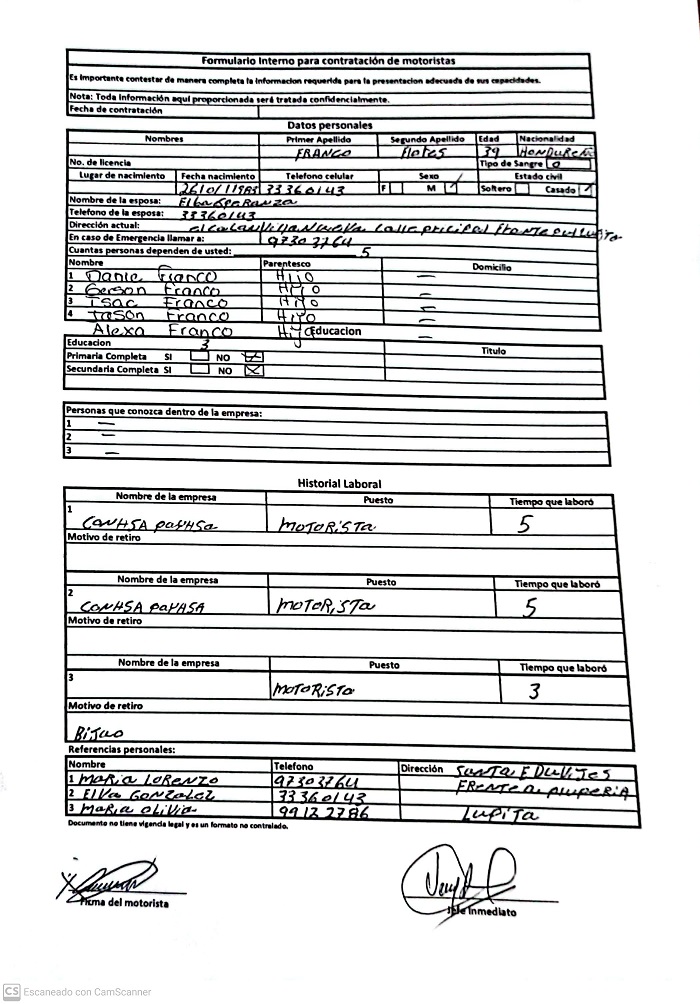 Formulario Interno para contratación de motoristas
Es Importante contestar de manera completa la informacion requerida para la presentacion adecuada de sus capacidades.
Nota: Toda información aqui proporcionada será tratada confidencialmente.
Fecha de contratación
Datos personales
Nombres Primer Apellido Segundo Apellido Edad Nacionalidad
FRANCO flores 39 HONDUREÑ
No. de licencia Tipo de Sangre O
Lugar de nacimiento Fecha nacimiento Telefono celular Sexo Estado civil
33360143 F M Soltero Casado
Nombre de la esposa: Elba Esperanza
Telefono de la esposa: 33360143
Dirección actual:
En caso de Emergencia llamar a: 97303764
Cuantas personas dependen de usted: 5
Nombre Parentesco Domicilio
1 Franco Hijo —
2 Gerson Franco Hijo —
3 Isac Franco Hijo —
4 Jason Franco Hijo —
Alexa Franco Hija Educacion —
Educacion 3 Titulo
Primaria Completa SI NO
Secundaria Completa SI NO
Personas que conozca dentro de la empresa:
1 —
2 —
3 —
Historial Laboral
Nombre de la empresa Puesto Tiempo que laboró
1 CONHSA PAYHSA MOTORISTA 5
Motivo de retiro
Nombre de la empresa Puesto Tiempo que laboró
2 CONHSA PAYHSA MOTORISTA 5
Motivo de retiro
Nombre de la empresa Puesto Tiempo que laboró
3 MOTORISTA 3
Motivo de retiro
BIJAO
Referencias personales:
Nombre Telefono Dirección SANTA EDUVIJES
1 MARIA LORENZO 97303764 FRENTE A PULPERIA
2 Elva GONZALEZ 33360143
3 MARIA OLIVIA 99122786 LUPITA
Documento no tiene vigencia legal y es un formato no controlado.
Firma del motorista Jefe Inmediato
CS Escaneado con CamScanner